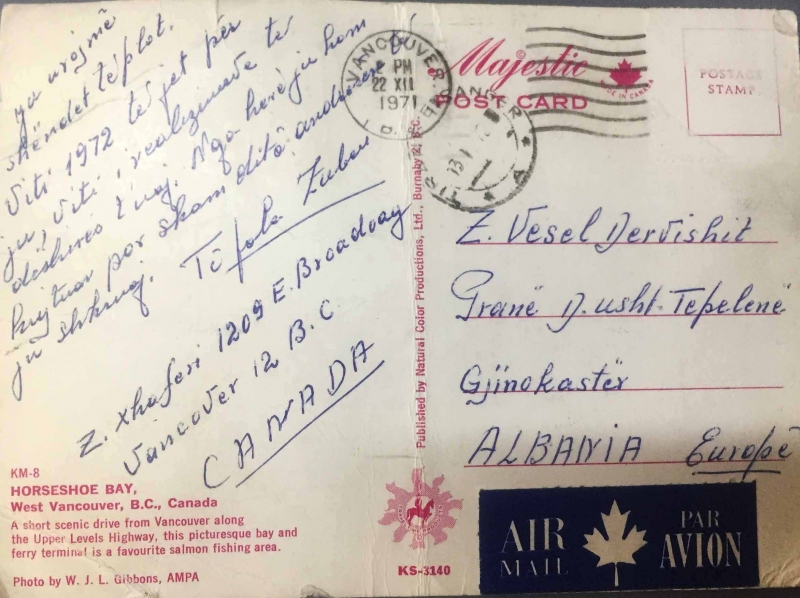 ju urojmë
shëndet të plot.
Viti 1972 të jet për
ju, viti, i realizimeve të
dëshires t'uaj. Nga herë ju kam
kujtuar por s'kam ditë
ju shkruaj. Të fala Zubeu
Z. Xhaferi 1209 E. Broadway
Vancover 12 B.C
CANADA
KM-8
HORSESHOE BAY,
West Vancouver, B.C., Canada
A short scenic drive from Vancouver along
the Upper Levels Highway, this picturesque bay and
ferry terminal is a favourite salmon fishing area.
Photo by W. J. L. Gibbons, AMPA
Published by Natural Color Productions, Ltd., Burnaby 2, B.C.
VANCOUVER
PM
22 XII
1971
B.C.
Majestic
POST CARD
MADE IN CANADA
POSTAGE
STAMP
Z. Vesel Dervishit
Pranë D.usht. Tepelenë
Gjinokastër
ALBANIA Europë
KS-3140
AIR
MAIL
PAR
AVION